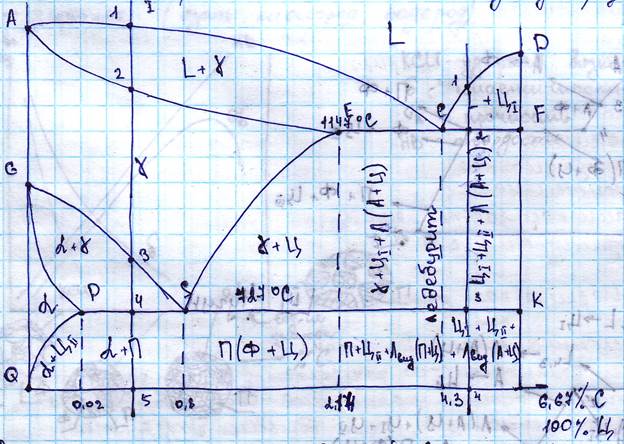 I
A
1
L
D
L + γ
2
1
+ Ц_I
E
1147°C
C
2
F
G
γ
γ+Ц_II+Л(А+Ц)
Ледебурит
Ц_I+Ц_II+Л(А+Ц)
α+γ
3
γ+Ц
P
4
S
727°C
3
K
α
α+Ц_III
α+П
П(Ф+Ц)
П+Ц_II+Л
(П+Ц)
Ц_I + Ц_II +
+ Л
(А+Ц)
Q
0,02
5
0,8
2,14
4,3
4
6,67% C
100% Ц